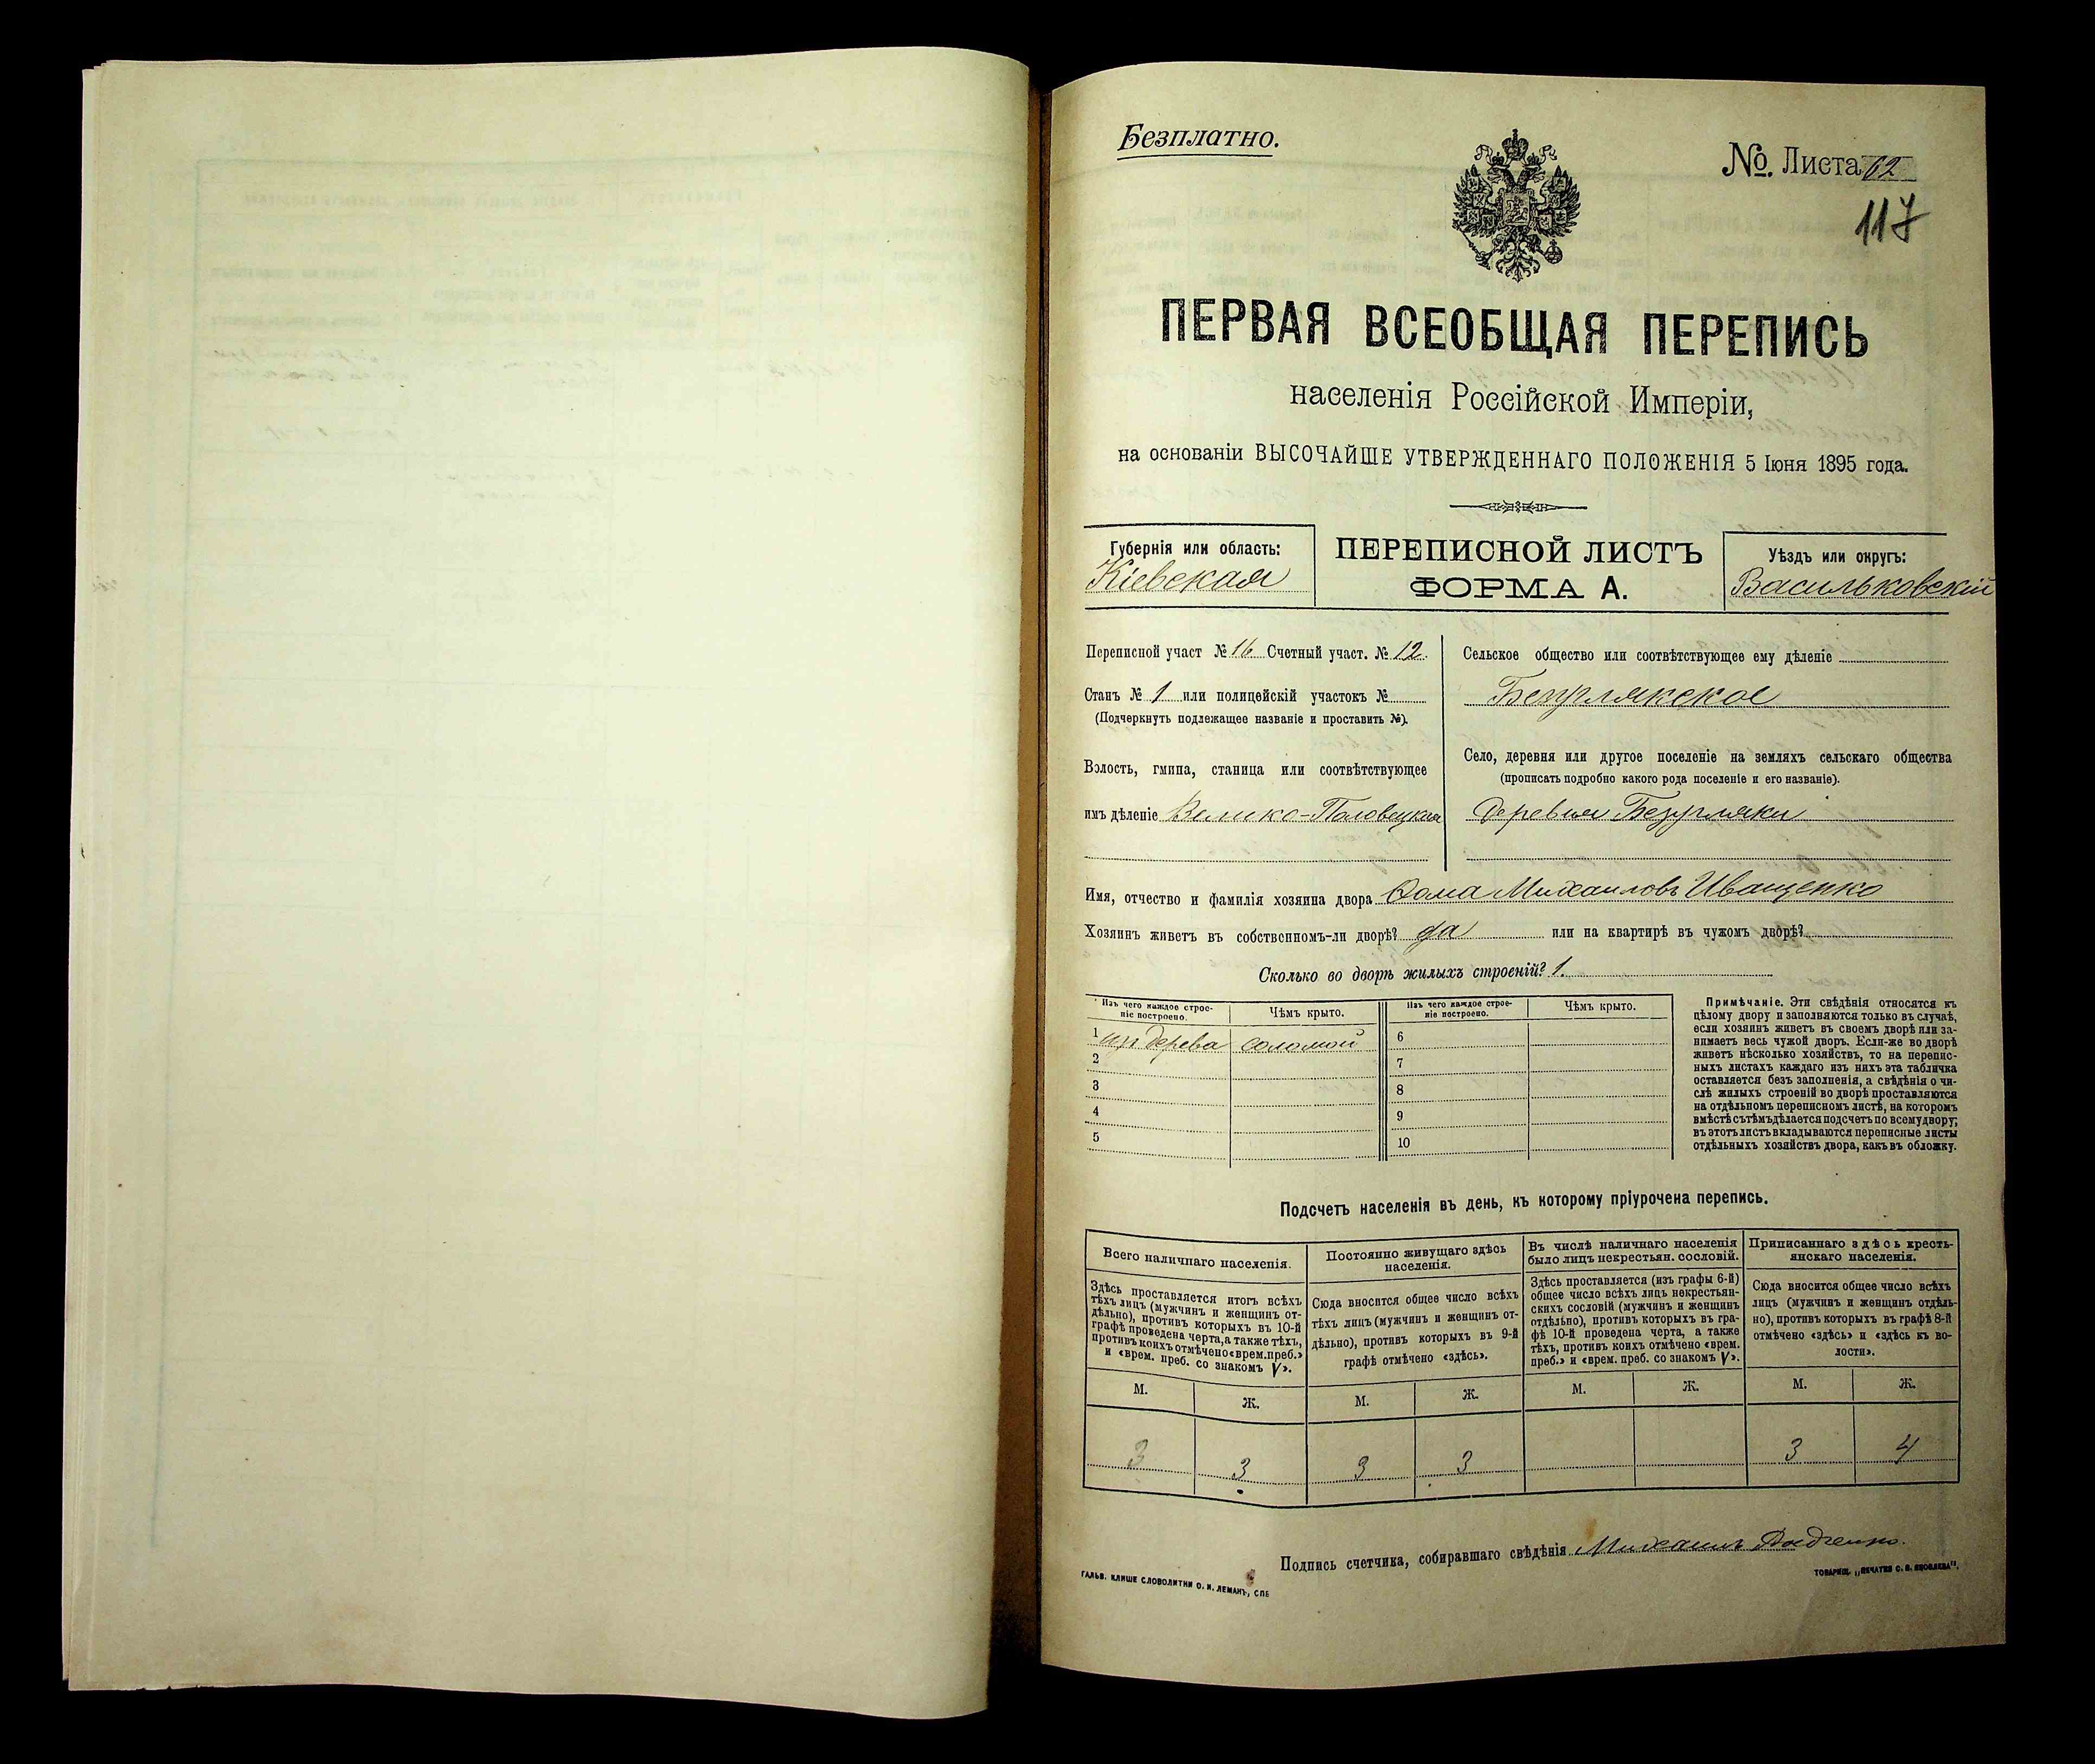 Безплатно.
№. Листа 62
117
ПЕРВАЯ ВСЕОБЩАЯ ПЕРЕПИСЬ
населенія Россійской Имперіи,
на основаніи ВЫСОЧАЙШЕ УТВЕРЖДЕННАГО ПОЛОЖЕНІЯ 5 Іюня 1895 года.
Губернія или область:
Кіевская
ПЕРЕПИСНОЙ ЛИСТЪ
ФОРМА А.
Уѣздъ или округъ:
Васильковскій
Переписной участ № 16 Счетный участ. № 12.
Станъ № 1 или полицейскій участокъ №
(Подчеркнуть подлежащее названіе и проставить №).
Волость, гмина, станица или соотвѣтствующее
имъ дѣленіе Велико-Половецкая
Сельское общество или соотвѣтствующее ему дѣленіе
Безуглякское
Село, деревня или другое поселеніе на земляхъ сельскаго общества
(прописать подробно какого рода поселеніе и его названіе).
деревня Безугляки
Имя, отчество и фамилія хозяина двора Фома Михаиловъ Иващенко
Хозяинъ живетъ въ собственномъ-ли дворѣ? да или на квартирѣ въ чужомъ дворѣ?
Сколько во дворѣ жилыхъ строеній? 1.
Изъ чего каждое строе-
ніе построено.
Чѣмъ крыто.
1 изъ дерева соломой
2
3
4
5
Изъ чего каждое строе-
ніе построено.
Чѣмъ крыто.
6
7
8
9
10
Примѣчаніе. Эти свѣдѣнія относятся къ
цѣлому двору и заполняются только въ случаѣ,
если хозяинъ живетъ въ своемъ дворѣ или за-
нимаетъ весь чужой дворъ. Если-же во дворѣ
живетъ нѣсколько хозяйствъ, то на перепис-
ныхъ листахъ каждаго изъ нихъ эта табличка
оставляется безъ заполненія, а свѣдѣнія о чи-
слѣ жилыхъ строеній во дворѣ проставляются
на отдѣльномъ переписномъ листѣ, на которомъ
вмѣстѣ съ тѣмъ дѣлается подсчетъ по всему двору;
въ этотъ листъ вкладываются переписные листы
отдѣльныхъ хозяйствъ двора, какъ въ обложку.
Подсчетъ населенія въ день, къ которому пріурочена перепись.
Всего наличнаго населенія.
Здѣсь проставляется итогъ всѣхъ
тѣхъ лицъ (мужчинъ и женщинъ от-
дѣльно), противъ которыхъ въ 10-й
графѣ проведена черта, а также тѣхъ,
противъ коихъ отмѣчено «врем. преб.»
и «врем. преб. со знакомъ V».
М. Ж.
3 3
Постоянно живущаго здѣсь
населенія.
Сюда вносится общее число всѣхъ
тѣхъ лицъ (мужчинъ и женщинъ от-
дѣльно), противъ которыхъ въ 9-й
графѣ отмѣчено «здѣсь».
М. Ж.
3 3
Въ числѣ наличнаго населенія
было лицъ некрестьян. сословій.
Здѣсь проставляется (изъ графы 6-й)
общее число всѣхъ лицъ некрестьян-
скихъ сословій (мужчинъ и женщинъ
отдѣльно), противъ которыхъ въ гра-
фѣ 10-й проведена черта, а также
тѣхъ, противъ коихъ отмѣчено «врем.
преб.» и «врем. преб. со знакомъ V».
М. Ж.
Приписаннаго здѣсь кресть-
янскаго населенія.
Сюда вносится общее число всѣхъ
лицъ (мужчинъ и женщинъ отдѣль-
но), противъ которыхъ въ графѣ 8-й
отмѣчено «здѣсь» и «здѣсь къ во-
лости».
М. Ж.
3 4
Подпись счетчика, собиравшаго свѣдѣнія Михаилъ
ГАЛЬВ. КЛИШЕ СЛОВОЛИТНИ О. И. ЛЕМАНЪ, СПБ
ТОВАРИЩ. „ПЕЧАТНЯ С. П. ЯКОВЛЕВА".